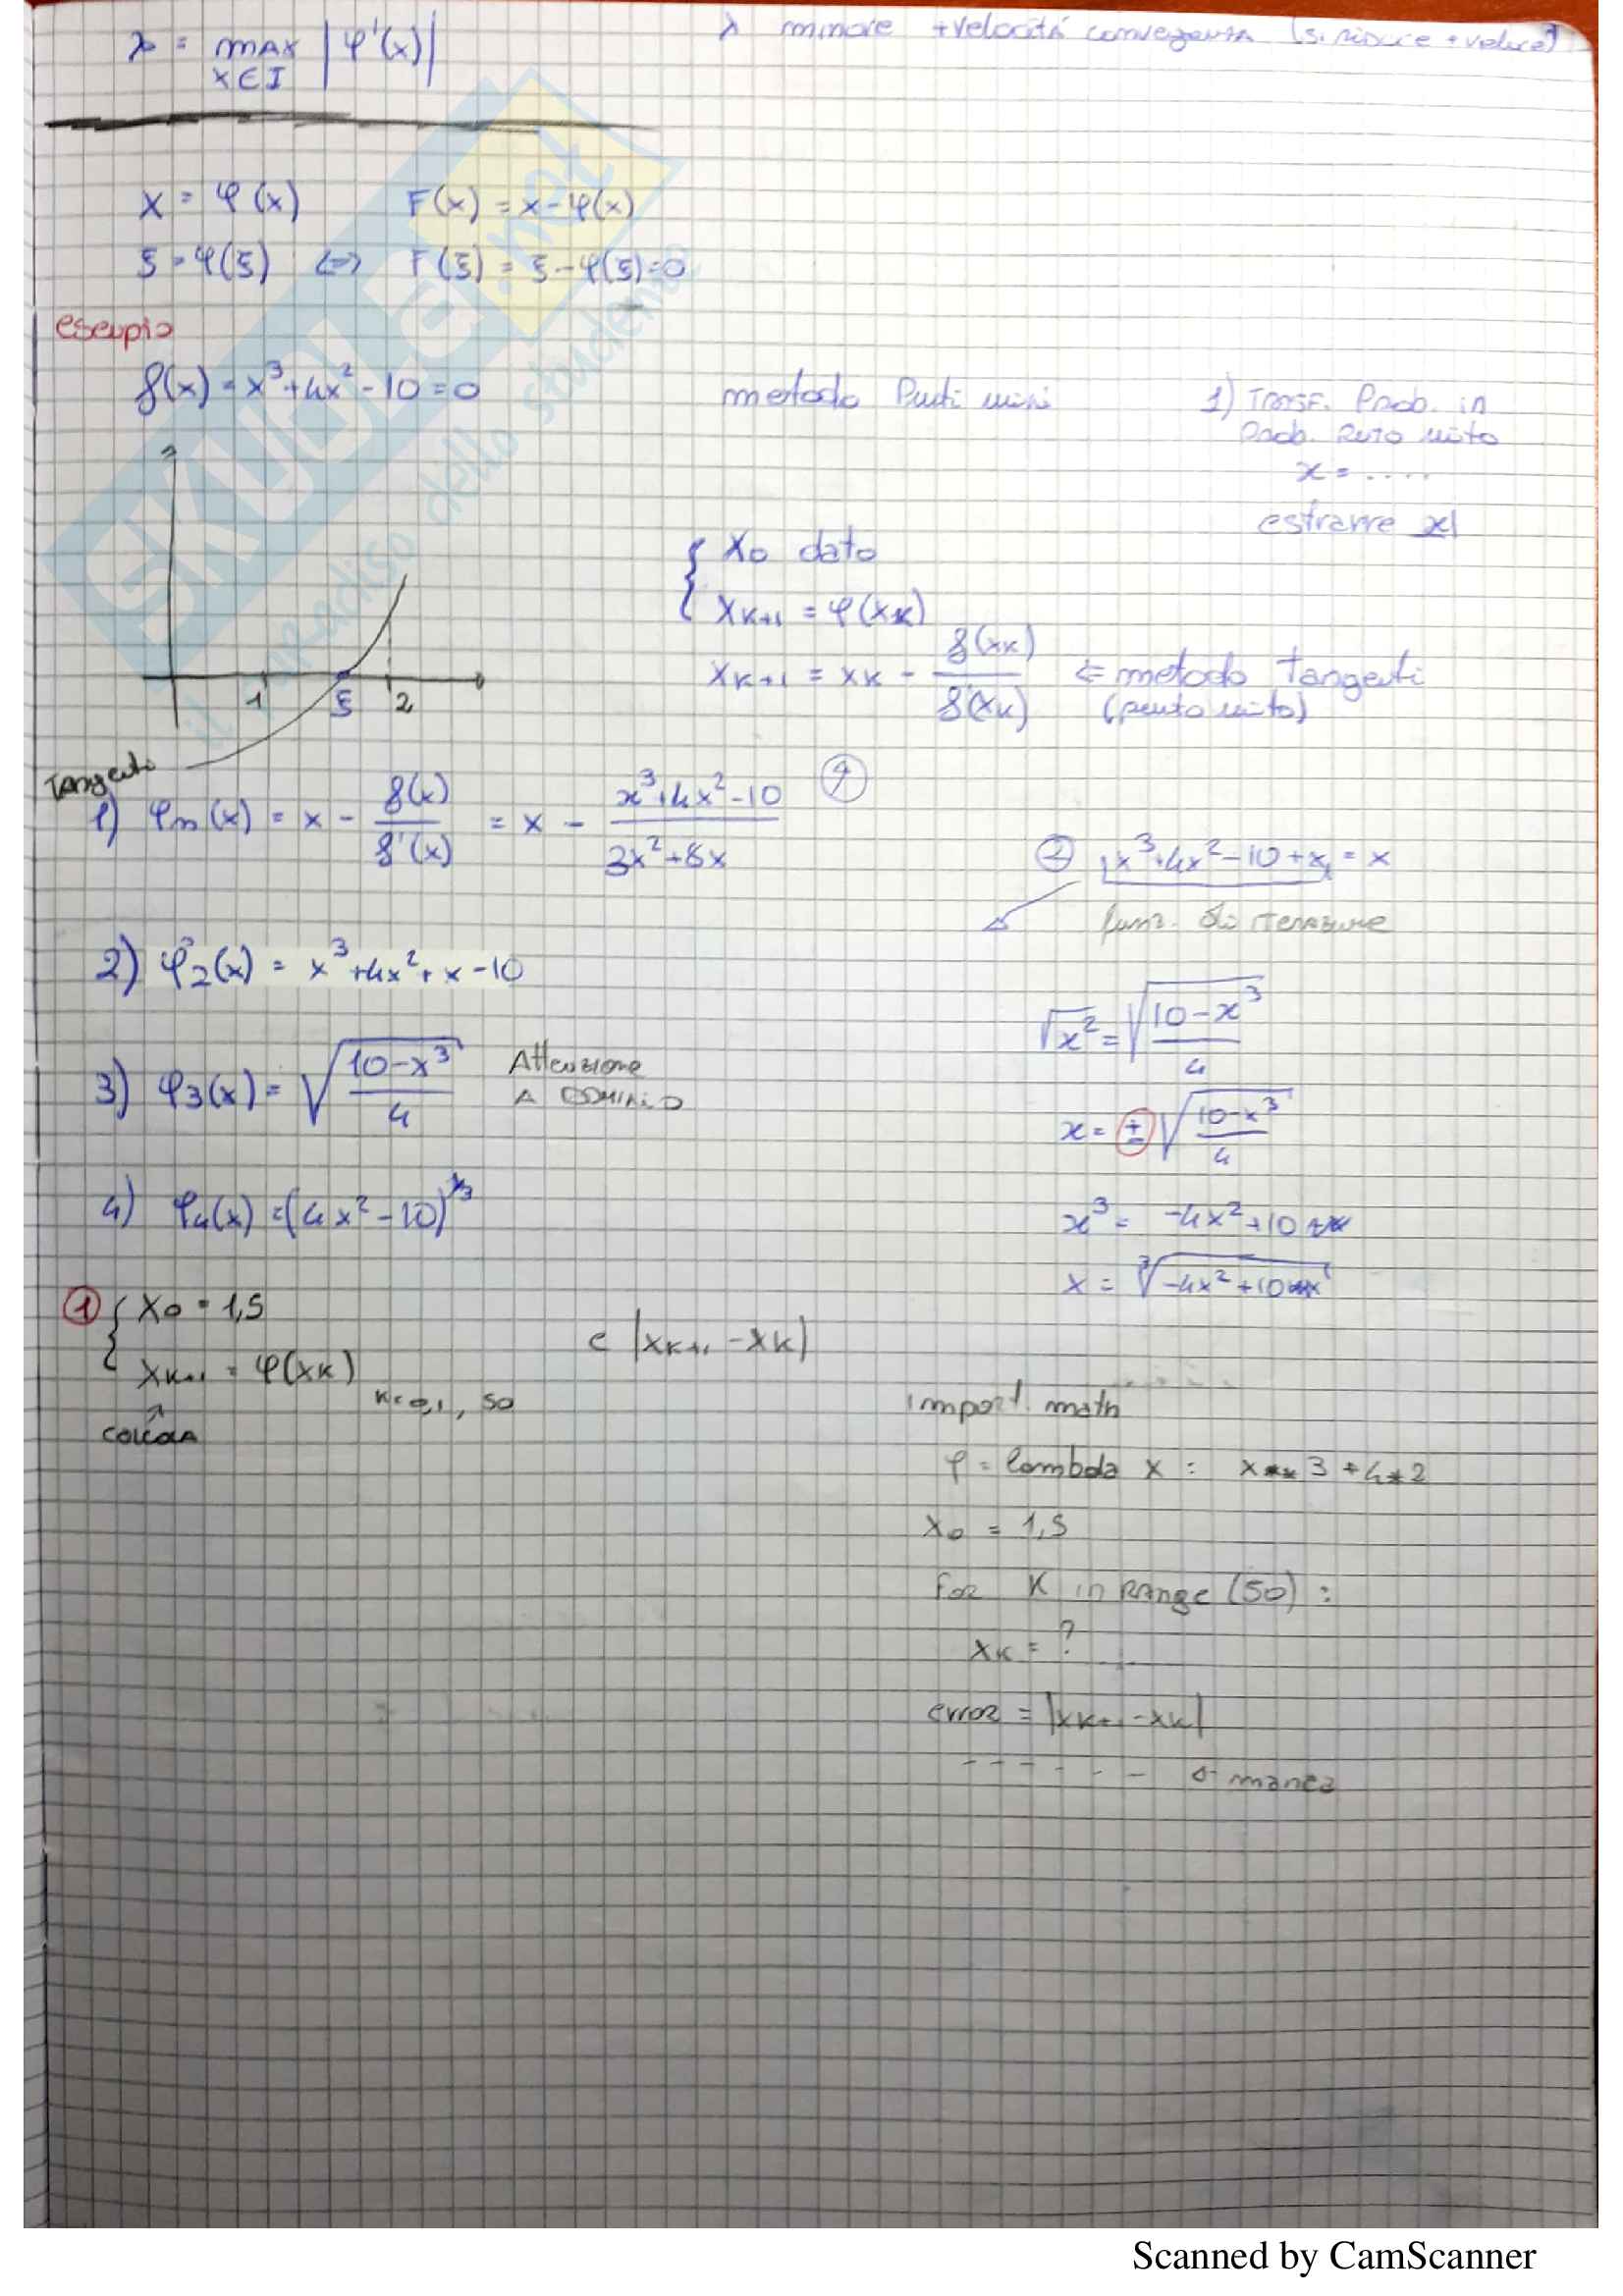 λ = max |φ'(x)|
x∈I
λ minore +velocità convergenza (si riduce + veloce)
x = φ(x) F(x) = x-φ(x)
ξ = φ(ξ) <=> F(ξ) = ξ-φ(ξ)=0
esempio
f(x) = x³+4x²-10=0
metodo Punti uniti
1) Trasf. Prob. in
Prob. Punto unito
x = ....
estrarre x
{ x0 dato
xk+1 = φ(xk)
xk+1 = xk - f(xk)/f'(xk) <= metodo Tangenti
(punto unito)
1 ξ 2
Tangenti
1) φn(x) = x - f(x)/f'(x) = x - (x³+4x²-10)/(3x²+8x) φ
② x³+4x²-10+x = x
funz. di iterazione
2) φ2(x) = x³+4x²+x-10
√x² = √((10-x³)/4)
3) φ3(x) = √((10-x³)/4) Attenzione
A DOMINIO
x = ± √((10-x³)/4)
4) φ4(x) = (4x²-10)^1/3
x³ = -4x²+10
x = ³√(-4x²+10)
① { x0 = 1,5
xk+1 = φ(xk)
k=0,1, 50
calcola
e |xk+1 - xk|
import math
φ = lambda x : x**3 + 4*2
x0 = 1,5
for k in range (50) :
xk = ?
error = |xk+1 - xk|
------ manca
SKUOLA.net
il paradiso dello studente
Scanned by CamScanner